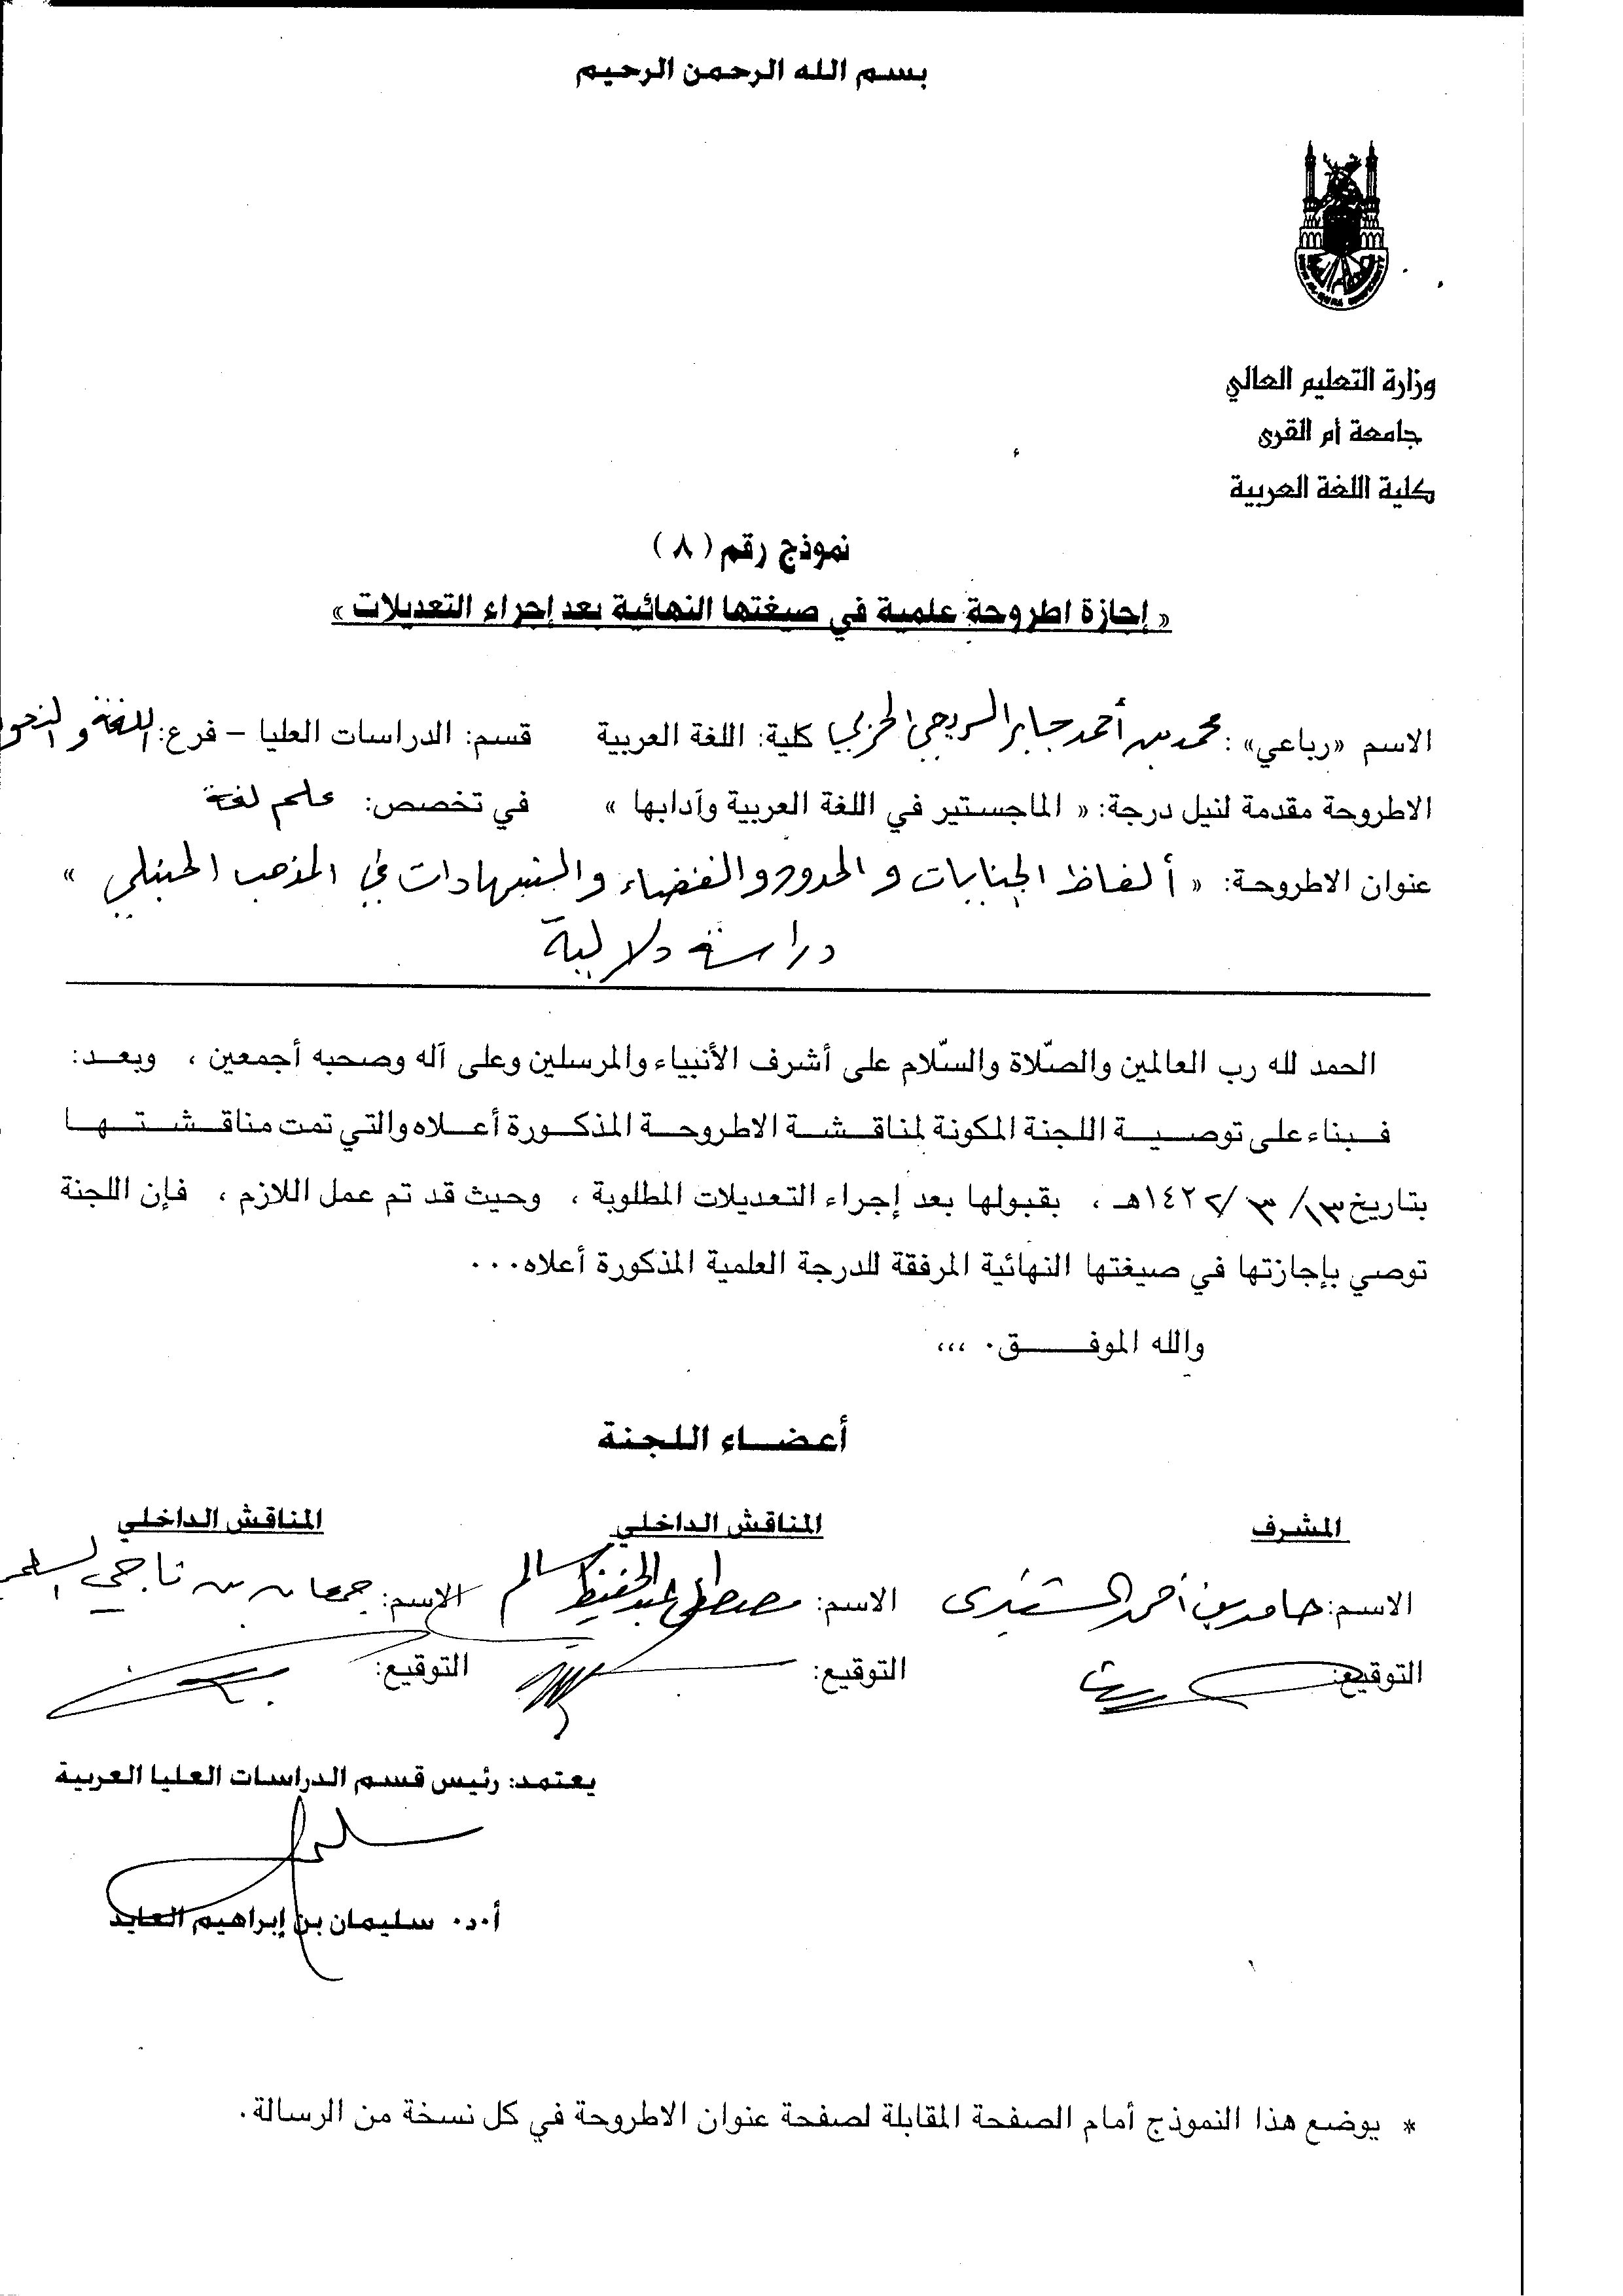 بسم الله الرحمن الرحيم
وزارة التعليم العالي
جامعة أم القرى
كلية اللغة العربية
نموذج رقم ( ٨ )
« إجازة اطروحة علمية في صيغتها النهائية بعد إجراء التعديلات »
الاسم «رباعي» : محمد بن أحمد جابر الحربي كلية: اللغة العربية قسم: الدراسات العليا – فرع: اللغة والنحو
الاطروحة مقدمة لنيل درجة: « الماجستير في اللغة العربية وآدابها » في تخصص: علم لغة
عنوان الاطروحة: « ألفاظ الجنايات والحدود والقضاء والشهادات في المذهب الحنبلي »
دراسة دلالية
الحمد لله رب العالمين والصّلاة والسّلام على أشرف الأنبياء والمرسلين وعلى آله وصحبه أجمعين ، وبعـد:
فبناء على توصية اللجنة المكونة لمناقشة الاطروحة المذكورة أعلاه والتي تمت مناقشتها
بتاريخ ١٣/ ٣ /١٤٢٢هـ ، بقبولها بعد إجراء التعديلات المطلوبة ، وحيث قد تم عمل اللازم ، فإن اللجنة
توصي بإجازتها في صيغتها النهائية المرفقة للدرجة العلمية المذكورة أعلاه...
والله الموفـــق. ،،،
أعضـاء اللـجـنة
المشرف المناقش الداخلي المناقش الداخلي
الاسم: حامد بن أحمد الشنبري الاسم: مصطفى عبد الحفيظ سالم الاسم: جمعان بن ناجي السلمي
التوقيع: التوقيع: التوقيع:
يعتمد: رئيس قسم الدراسات العليا العربية
أ.د. سليمان بن إبراهيم العايد
* يوضع هذا النموذج أمام الصفحة المقابلة لصفحة عنوان الاطروحة في كل نسخة من الرسالة.